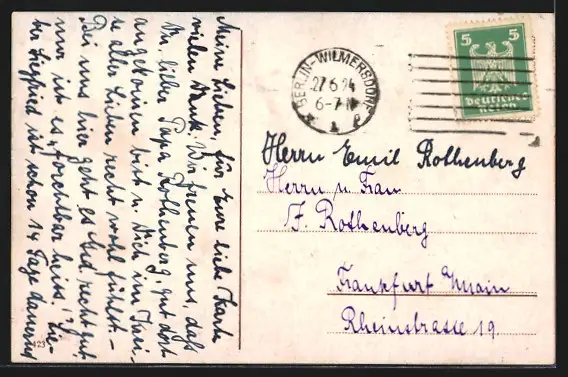 Meine Lieben, für Eure liebe Karte
vielen Dank. Wir freuen uns, daß
Du, lieber Papa Rothenberg, gut dort
angekommen bist u. Dich im Krei-
se aller Lieben recht wohl fühlst. -
Bei uns hier geht es recht gut
nur ist es "forchtbar heiss"
ber Siegfried ist schon 14 Tage dauernd
423
BERLIN-WILMERSDORF
27.6.24
6-7 N
* 1 e
5 5
Deutsches
Reich
Herrn Emil Rothenberg
Herrn u Frau
J. Rothenberg
Frankfurt Main
Rheinstrasse 19